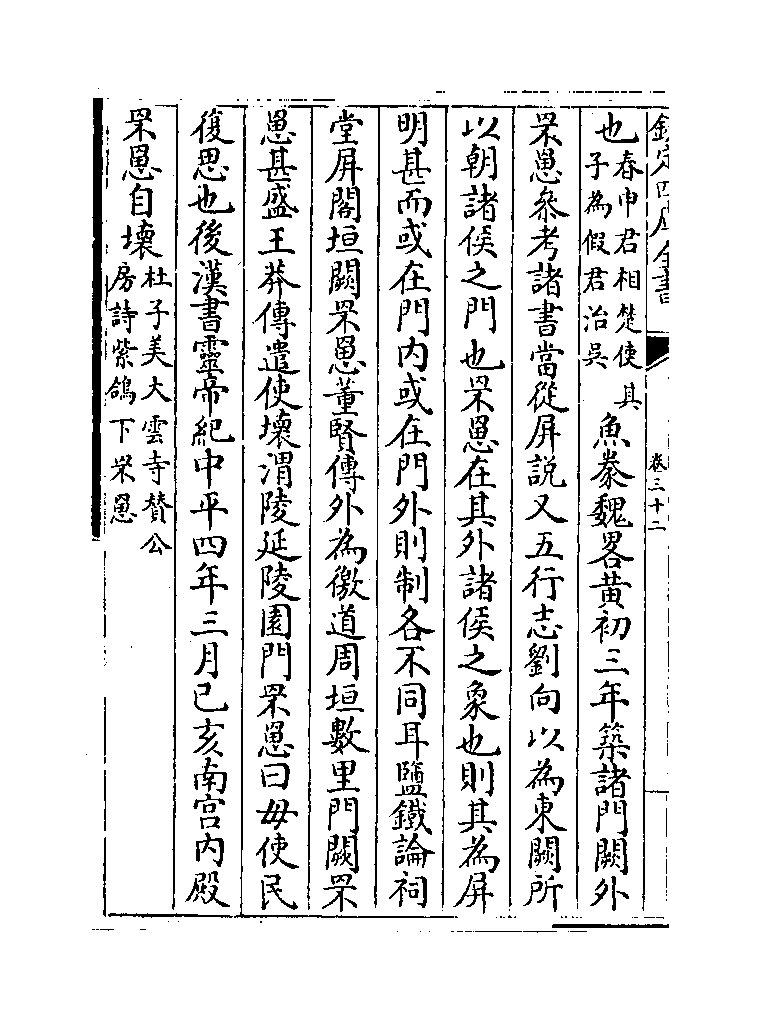 欽定四庫全書
卷三十二
也春申君相楚使其子為假君治吳魚豢魏畧黃初三年築諸門闕外
罘罳叅考諸書當從屏説又五行志劉向以為東闕所
以朝諸侯之門也罘罳在其外諸侯之象也則其為屏
明甚而或在門内或在門外則制各不同耳鹽鐵論祠
堂屏閣垣闕罘罳董賢傳外為徼道周垣數里門闕罘
罳甚盛王莽傳遣使壞渭陵延陵園門罘罳曰毋使民
復思也後漢書靈帝紀中平四年三月己亥南宫内殿
罘罳自壞杜子美大雲寺賛公房詩紫鴿下罘罳